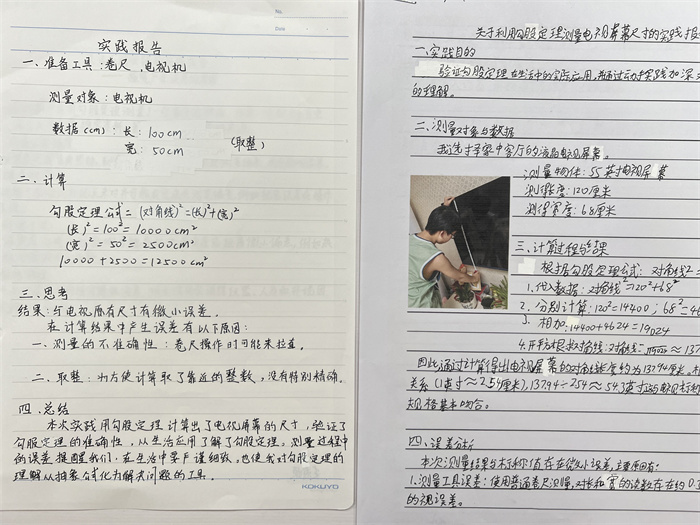 No.
Date
实践报告
一、准备工具：卷尺、电视机
测量对象：电视机
数据(cm)：长：100cm
宽：50cm
(取整)
二、计算
勾股定理公式=(对角线)²=(长)²+(宽)²
(长)²=100²=10000cm²
(宽)²=50²=2500cm²
10000+2500=12500cm²
三、思考
结果：与电视原有尺寸有微小误差.
在计算结果中产生误差有以下原因：
一、测量的不准确性：卷尺操作时可能未拉直.
二、取整：为方便计算取了靠近的整数，没有特别精确.
四、总结
本次实践用勾股定理计算出了电视屏幕的尺寸，验证了
勾股定理的准确性，从生活应用了解了勾股定理。测量过程中
的误差提醒我们，在生活中要严谨细致。也使我对勾股定理的
理解从抽象公式化为解决问题的工具。
KOKUYO
关于利用勾股定理测量电视屏幕尺寸的实践报
一、实践目的
验证勾股定理在生活中的实际应用，并通过动手实践加深
的理解。
二、测量对象与数据
我选择家中客厅的液晶电视屏幕。
测量物体：55英寸电视屏幕
测得长度：120厘米
测得宽度：68厘米
三、计算过程与结果
根据勾股定理公式：对角线²=
1.代入数据：对角线²=120²+68²
2.分别计算：120²=14400；68²=46
3.相加：14400+4624=19024
4.开平方根求对角线：对角线=√19024≈137
因此通过计算得出电视屏幕的对角线长度约为137.94厘米。
关系(1英寸≈2.54厘米)，137.94÷2.54≈54.3英寸
规格基本吻合。
四、误差分析
本次测量结果与标称值存在微小误差，主要原因有：
1.测量工具误差：使用普通卷尺测量，对长和宽的读数存在约0.
的视误差。